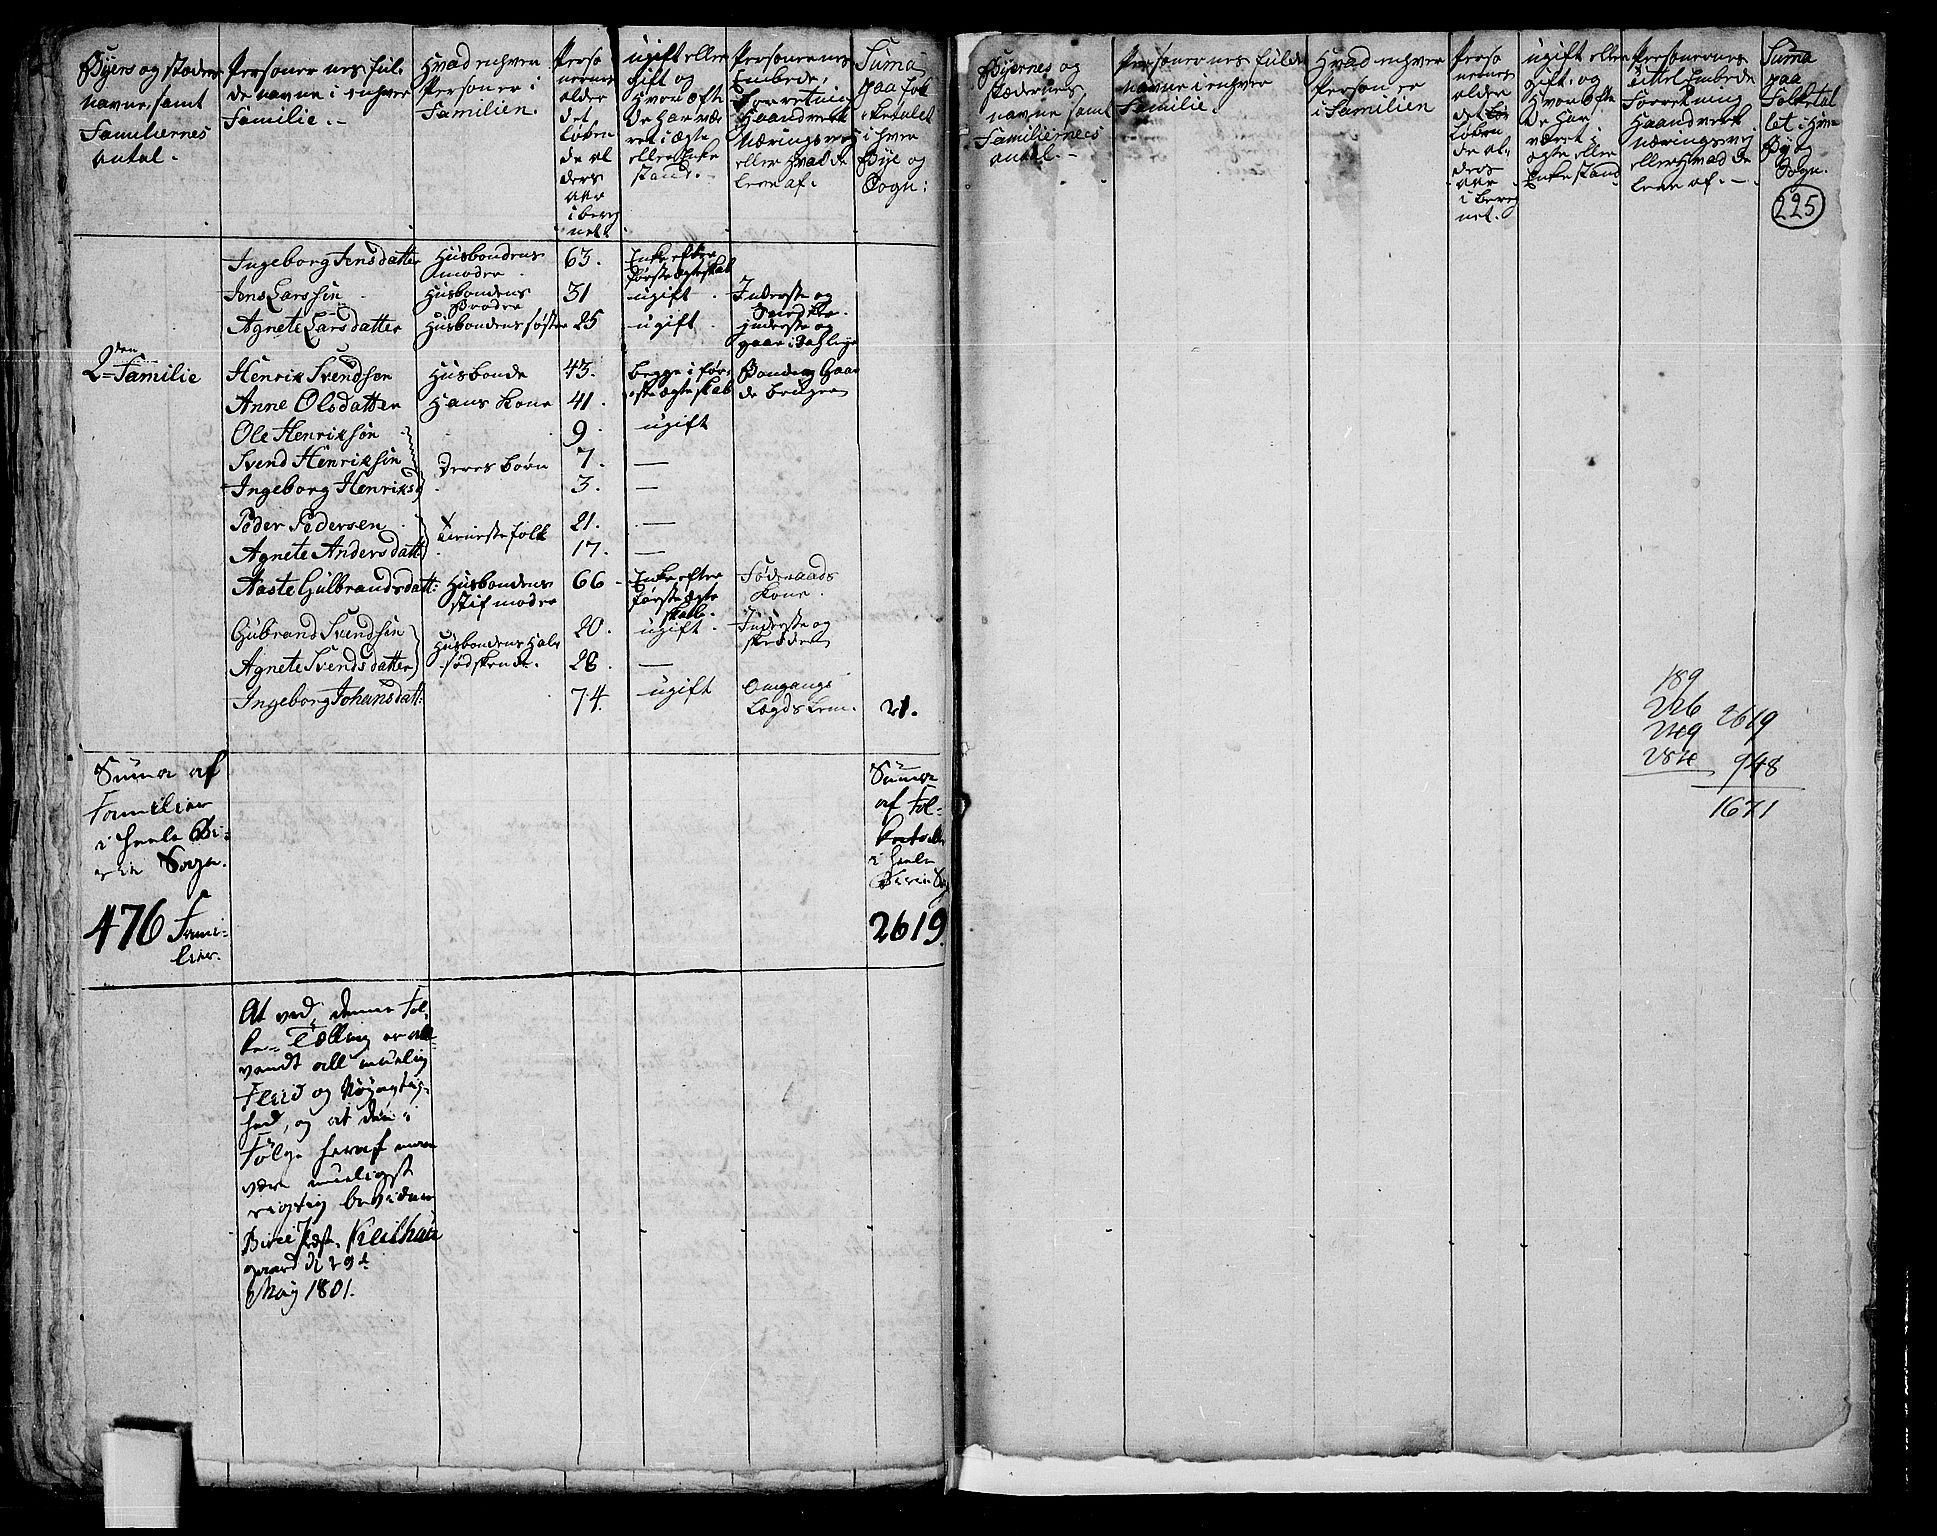 Byers og stæders
navne, samt
Familiernes
antal.
Personernes ful-
de navne i enhver
Familie.
Hvad enhver
Person er i
Familien.
Perso
nernes
alder
det
Løben
de al
ders
aar
i bereg
net
ugift eller
gift og
Hvor ofte
de har væ
ret i ægte
eller Enke
stand.
Personernes
Embede,
Forretning
Haandverk
Næringsvej
eller Hvad de
leve af.
Suma
paa fol
ketallet
i hver
Bye og
Sogn:
Ingeborg Jensdatter Husbondens moder 63. Enke efter første ægteskab
Jens Larssøn Husbondens Broder 31 ugift Inderste og
Agnete Larsdatter Husbondens søster 25 ugift inderste og
2den Familie
Henrik Svendsøn Husbonde 43. begge i før- Bonde og Gaar
Anne Olsdatter Hans Kone 41. ste ægteskab de bruger
Ole Henriksøn 9. ugift
Svend Henriksøn Deres børn 7. —
Ingeborg Henriksd 3. —
Peder Pedersen Tieneste folk 21. —
Agnete Andersdatt 17. —
Aaste Gulbrandsdatt: Husbondens stifmoder 66 Enke efter første ægteskab. Føderaads Kone.
Gubrand Svendsøn Husbondens Halv 20. ugift. Inderste og skreder
Agnete Svendsdatter sødskende. 28. —
Ingeborg Johansdatt: 74. ugift Omgangs Lægdslem. 21.
Suma af
Familier
i heele Bi-
rie Sogn.
476 Fami-
lier.
Suma
af Fol-
ketallet
i heele
Birie Sog
2619.
At ved denne Fol-
ke-Tælling er an-
vendt all muelig
Fliid og Nøyagtig-
hed, og at den i
Følge heraf maae
være mueligst
rigtig bevidner
Birie Præste- Keilhau
gaard d 29d
May 1801.
Byernes og
stædernes
navne samt
Familiernes
antal.
Personernes fulde
navne i enhver
Familie.
Hvad enhver
Person er
i Familien
Perso
nernes
alder
det
Løben
de al-
ders
aar
i bereg
net.
ugift eller
gift, og
Hvor ofte
de har
været i
ægte eller
Enkestand
Personernes
Tittel Embede
Forretning
Haandverk
næringsvej
eller Hvad de
leve af.
Suma
paa
Folketal
let i hver
By og
Sogn.
225
189
226 2619
249
284 948
1671